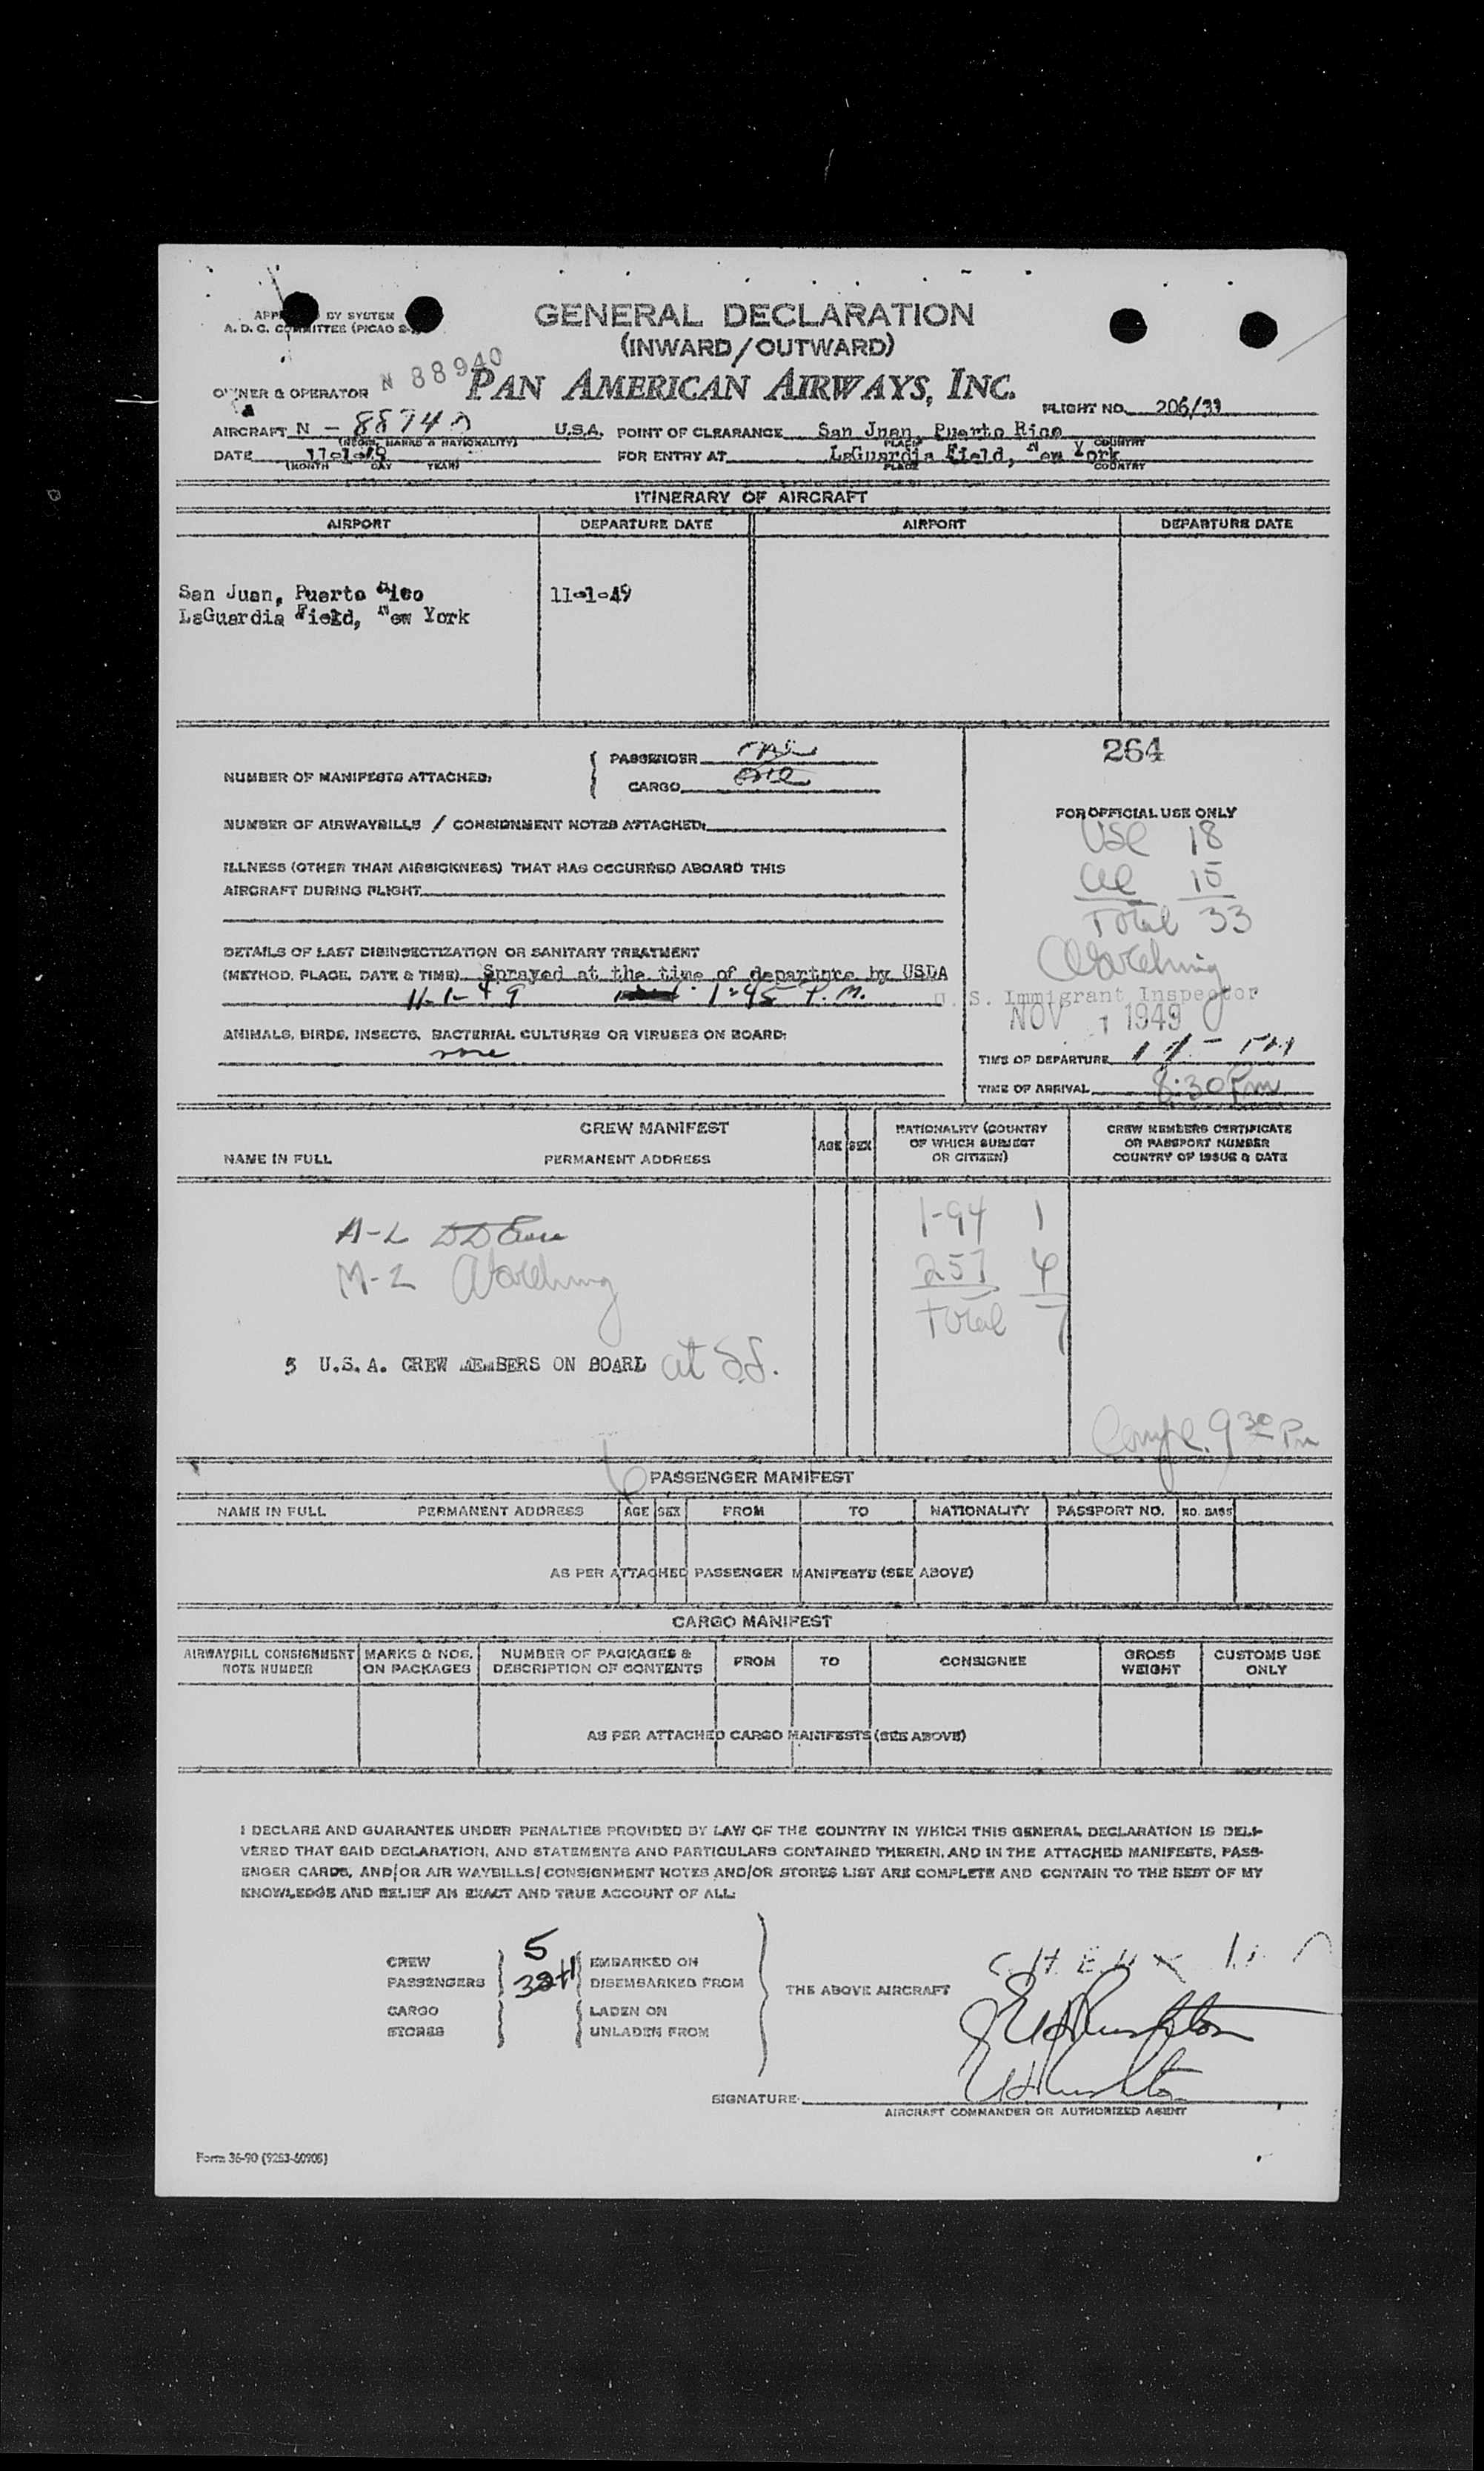 GENERAL DECLARATION
(INWARD/OUTWARD)
BY SYSTEM
A. D. C. COMMITTEE (PICAO
N 88940
OWNER & OPERATOR PAN AMERICAN AIRWAYS, INC.
FLIGHT NO. 206/33
AIRCRAFT N - 88940 U.S.A. POINT OF CLEARANCE San Juan, Puerto Rico
(REGIS. MARKS & NATIONALITY) PLACE COUNTRY
DATE 11-1-49 FOR ENTRY AT LaGuardia Field, New York
(MONTH DAY YEAR) PLACE COUNTRY
ITINERARY OF AIRCRAFT
AIRPORT DEPARTURE DATE AIRPORT DEPARTURE DATE
San Juan, Puerto Rico 11-1-49
LaGuardia Field, New York
264
NUMBER OF MANIFESTS ATTACHED:
PASSENGER one
CARGO one
FOR OFFICIAL USE ONLY
NUMBER OF AIRWAYBILLS / CONSIGNMENT NOTES ATTACHED:
USC 18
ILLNESS (OTHER THAN AIRSICKNESS) THAT HAS OCCURRED ABOARD THIS
AIRCRAFT DURING FLIGHT
15
Total 33
DETAILS OF LAST DISINSECTIZATION OR SANITARY TREATMENT
(METHOD, PLACE, DATE & TIME) Sprayed at the time of departure by USDA
11-1-49 1:45 P.M.
U. S. Immigrant Inspector
NOV 1 1949
ANIMALS, BIRDS, INSECTS, BACTERIAL CULTURES OR VIRUSES ON BOARD:
none
TIME OF DEPARTURE
TIME OF ARRIVAL 8:30 Pm
CREW MANIFEST
NAME IN FULL PERMANENT ADDRESS AGE SEX NATIONALITY (COUNTRY OF WHICH SUBJECT OR CITIZEN) CREW MEMBERS CERTIFICATE OR PASSPORT NUMBER COUNTRY OF ISSUE & DATE
A-L
1-94 1
M-2
257
Total 7
5 U.S.A. CREW MEMBERS ON BOARD at
9 30 Pm
PASSENGER MANIFEST
NAME IN FULL PERMANENT ADDRESS AGE SEX FROM TO NATIONALITY PASSPORT NO. NO. BAGS
AS PER ATTACHED PASSENGER MANIFESTS (SEE ABOVE)
CARGO MANIFEST
AIRWAYBILL CONSIGNMENT NOTE NUMBER MARKS & NOS. ON PACKAGES NUMBER OF PACKAGES & DESCRIPTION OF CONTENTS FROM TO CONSIGNEE GROSS WEIGHT CUSTOMS USE ONLY
AS PER ATTACHED CARGO MANIFESTS (SEE ABOVE)
I DECLARE AND GUARANTEE UNDER PENALTIES PROVIDED BY LAW OF THE COUNTRY IN WHICH THIS GENERAL DECLARATION IS DELI-
VERED THAT SAID DECLARATION, AND STATEMENTS AND PARTICULARS CONTAINED THEREIN, AND IN THE ATTACHED MANIFESTS, PASS-
ENGER CARDS, AND/OR AIR WAYBILLS/CONSIGNMENT NOTES AND/OR STORES LIST ARE COMPLETE AND CONTAIN TO THE BEST OF MY
KNOWLEDGE AND BELIEF AN EXACT AND TRUE ACCOUNT OF ALL:
CREW 5 EMBARKED ON
PASSENGERS 32+1 DISEMBARKED FROM
THE ABOVE AIRCRAFT
CARGO LADEN ON
STORES UNLADEN FROM
SIGNATURE
AIRCRAFT COMMANDER OR AUTHORIZED AGENT
Form 36-90 (9253-60905)